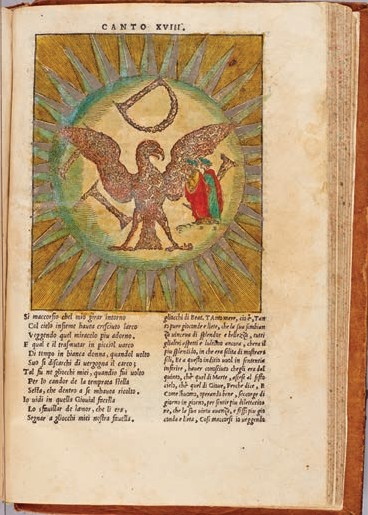 CANTO XVIII.
D
Si m'accorsio chel mio girar intorno
Col cielo insieme hauea cresciuto larco
Veggendo quel miracolo piu adorno.
E qual è il trasmutar in picciol uarco
Di tempo in bianca donna, quandol uolto
Suo si discarchi di uergogna il carco;
Tal fu ne gliocchi miei, quandio fui uolto
Per lo candor de la temprata stella
Sesta, che dentro a se mhauea ricolto.
Io uidi in quella Giouial facella
Lo sfauillar de lamor, che li era,
Segnar a gliocchi miei nostra fauella.
gliocchi di Beat. TANTO mere, cioè, Tan
to pure gioconde e liete, che la sua sembian
za uinceua di splendor e bellezza, tutti
gliultri aspetti e
piu splendido, in che era solita di mostrarsi
inferire, hauer conosciuto chegli era dal
quinto, chè quel di Marte, asceso al sesto
cielo, chè quel di Gioue, Perche dice, E
Come lhuomo, operando bene, saccorge di
giorno in giorno, per sentir piu dilettatio
ne, che la sua uirtu auanza, e fassi piu gio
conda e lieta, Cosi maccorsi io ueggendo